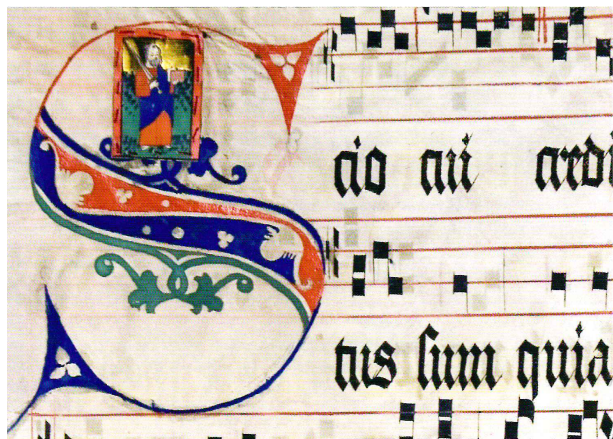 Scio cui credi
tus sum quia